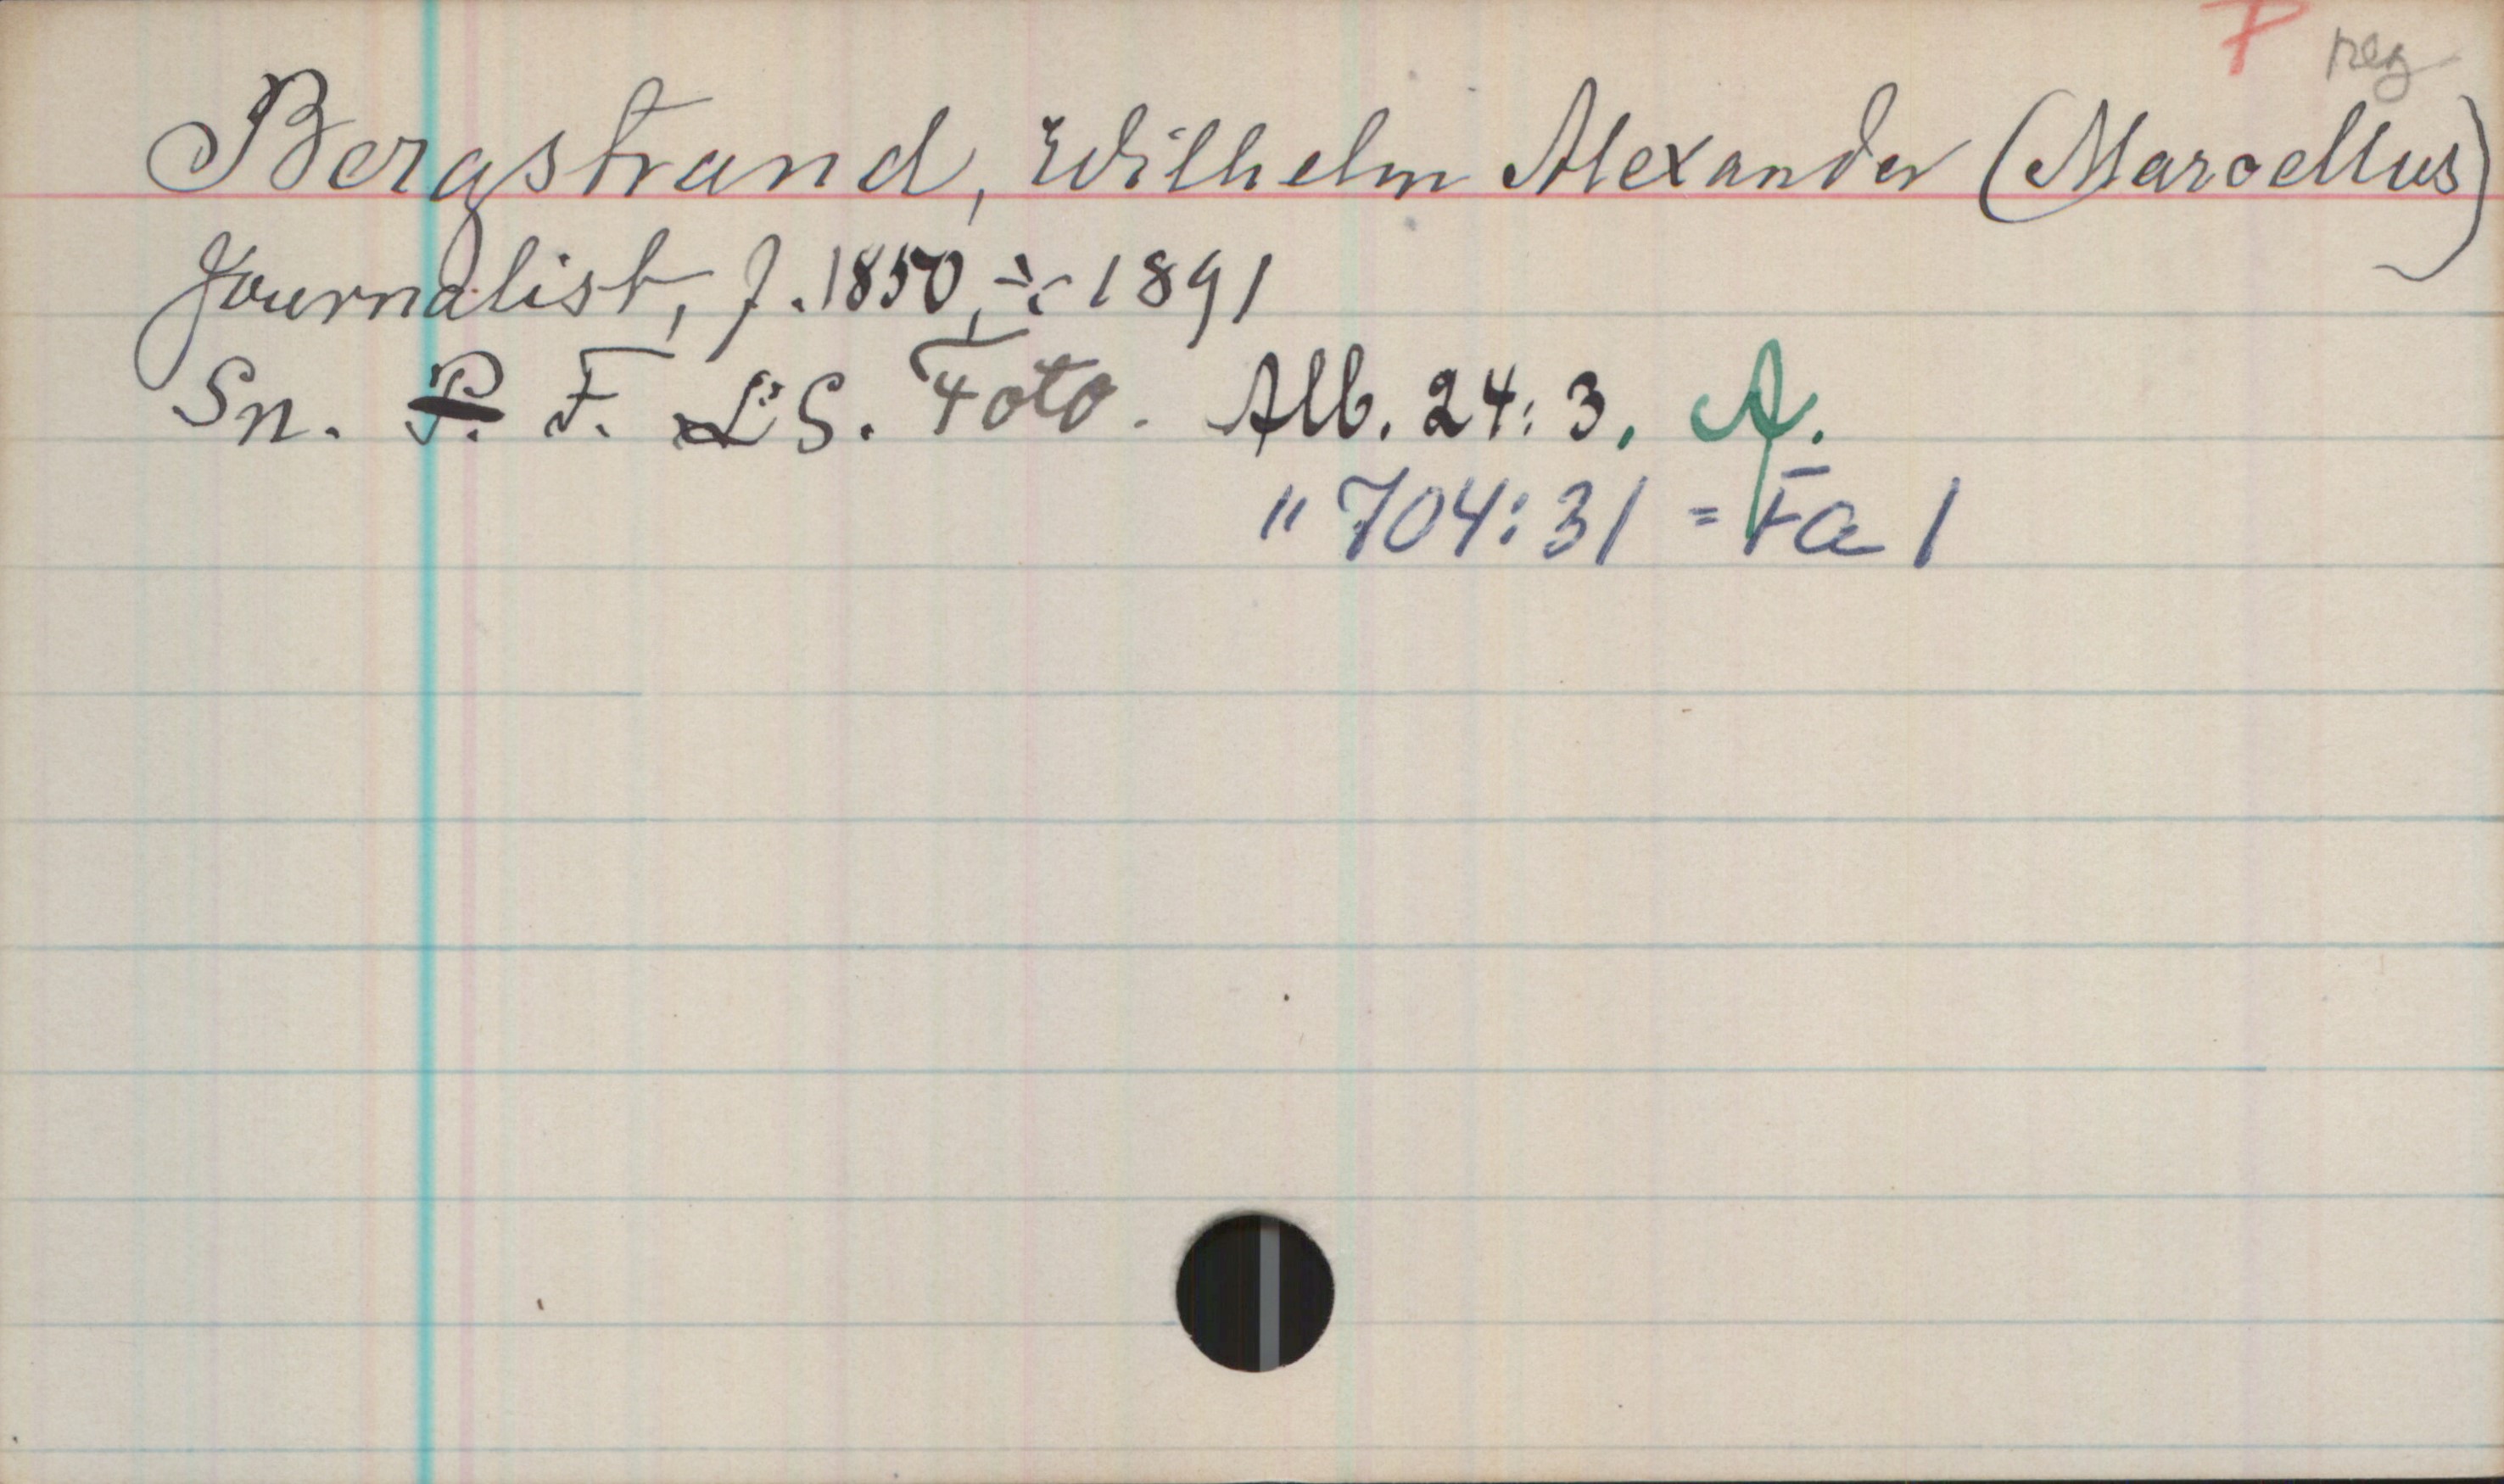 P neg
Bergstrand, Wilhelm Alexander (Marcellus)
Journalist, f. 1850, † 1891
Sn. P. F. LS. Foto. Alb. 24:3, A.
" 704:31 = Fa 1